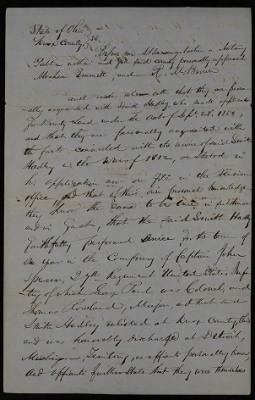 State of Ohio
Knox County } SS
Before me a Notary
Public within and for said county personally appeared
Abraham Emmett and R. M. Brown
and made oath that they are person-
ally acquainted with Smith Hadley who made application
for Bounty Land under the Act of Sept. 28, 1850,
and that they are personally acquainted with
the facts connected with the service of said Smith
Hadley in the War of 1812, as stated in
his application now on file in the Pension
office, and that of their own personal knowledge
they know the same to be true in substance
and in fact, that the said Smith Hadley
faithfully performed service for the term of
one year in the Company of Captain John
Spencer, 27th Regiment United States Infan-
try of which George Paul was Colonel, and
Thomas Rowland, Major, and that said
Smith Hadley enlisted at Knox County Ohio
and was honorably discharged at Detroit,
Michigan Territory, as affiants personally know
And affiants further state that they were themselves